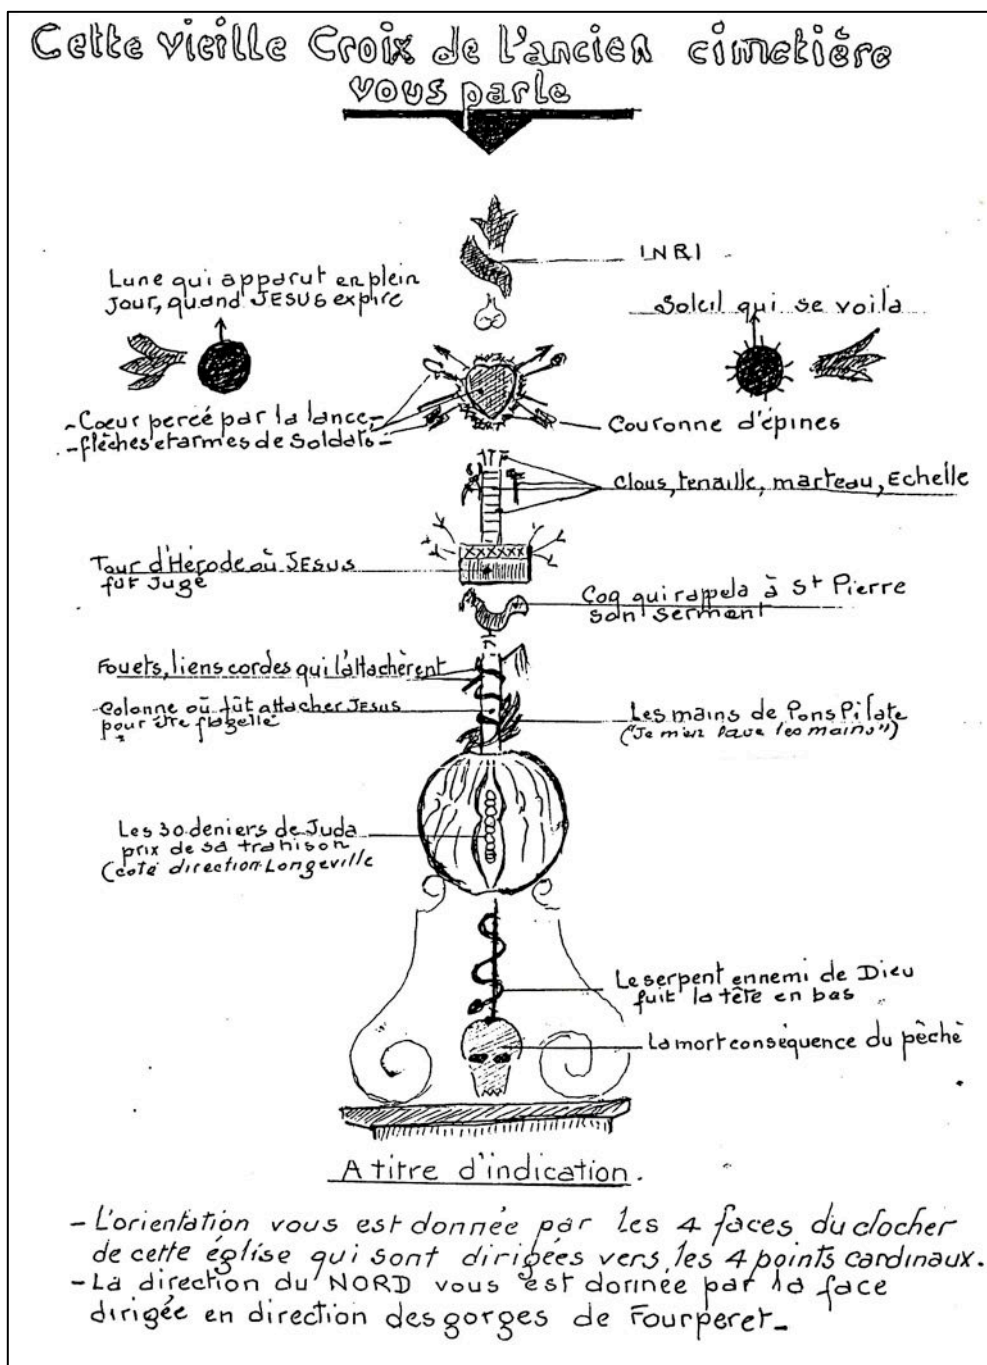 Cette vieille Croix de l'ancien cimetière
vous parle
INRI
Lune qui apparut en plein
Jour, quand JESUS expire
Soleil qui se voila
- Cœur percé par la lance -
- flèches et armes de Soldats -
Couronne d'épines
Clous, tenaille, marteau, Echelle
Tour d'Hérode où JESUS
fut Jugé
Coq qui rappela à St Pierre
son serment
Fouets, liens cordes qui l'attachèrent
Colonne où fût attacher JESUS
pour être flagellé
Les mains de Pons Pilate
("Je m'en lave les mains")
Les 30 deniers de Juda
prix de sa trahison
(coté direction Longeville
Le serpent ennemi de Dieu
fuit la tête en bas
La mort conséquence du pêchè
A titre d'indication.
- L'orientation vous est donnée par les 4 faces du clocher
de cette église qui sont dirigées vers les 4 points cardinaux.
- La direction du NORD vous est donnée par la face
dirigée en direction des gorges de Fourperet -